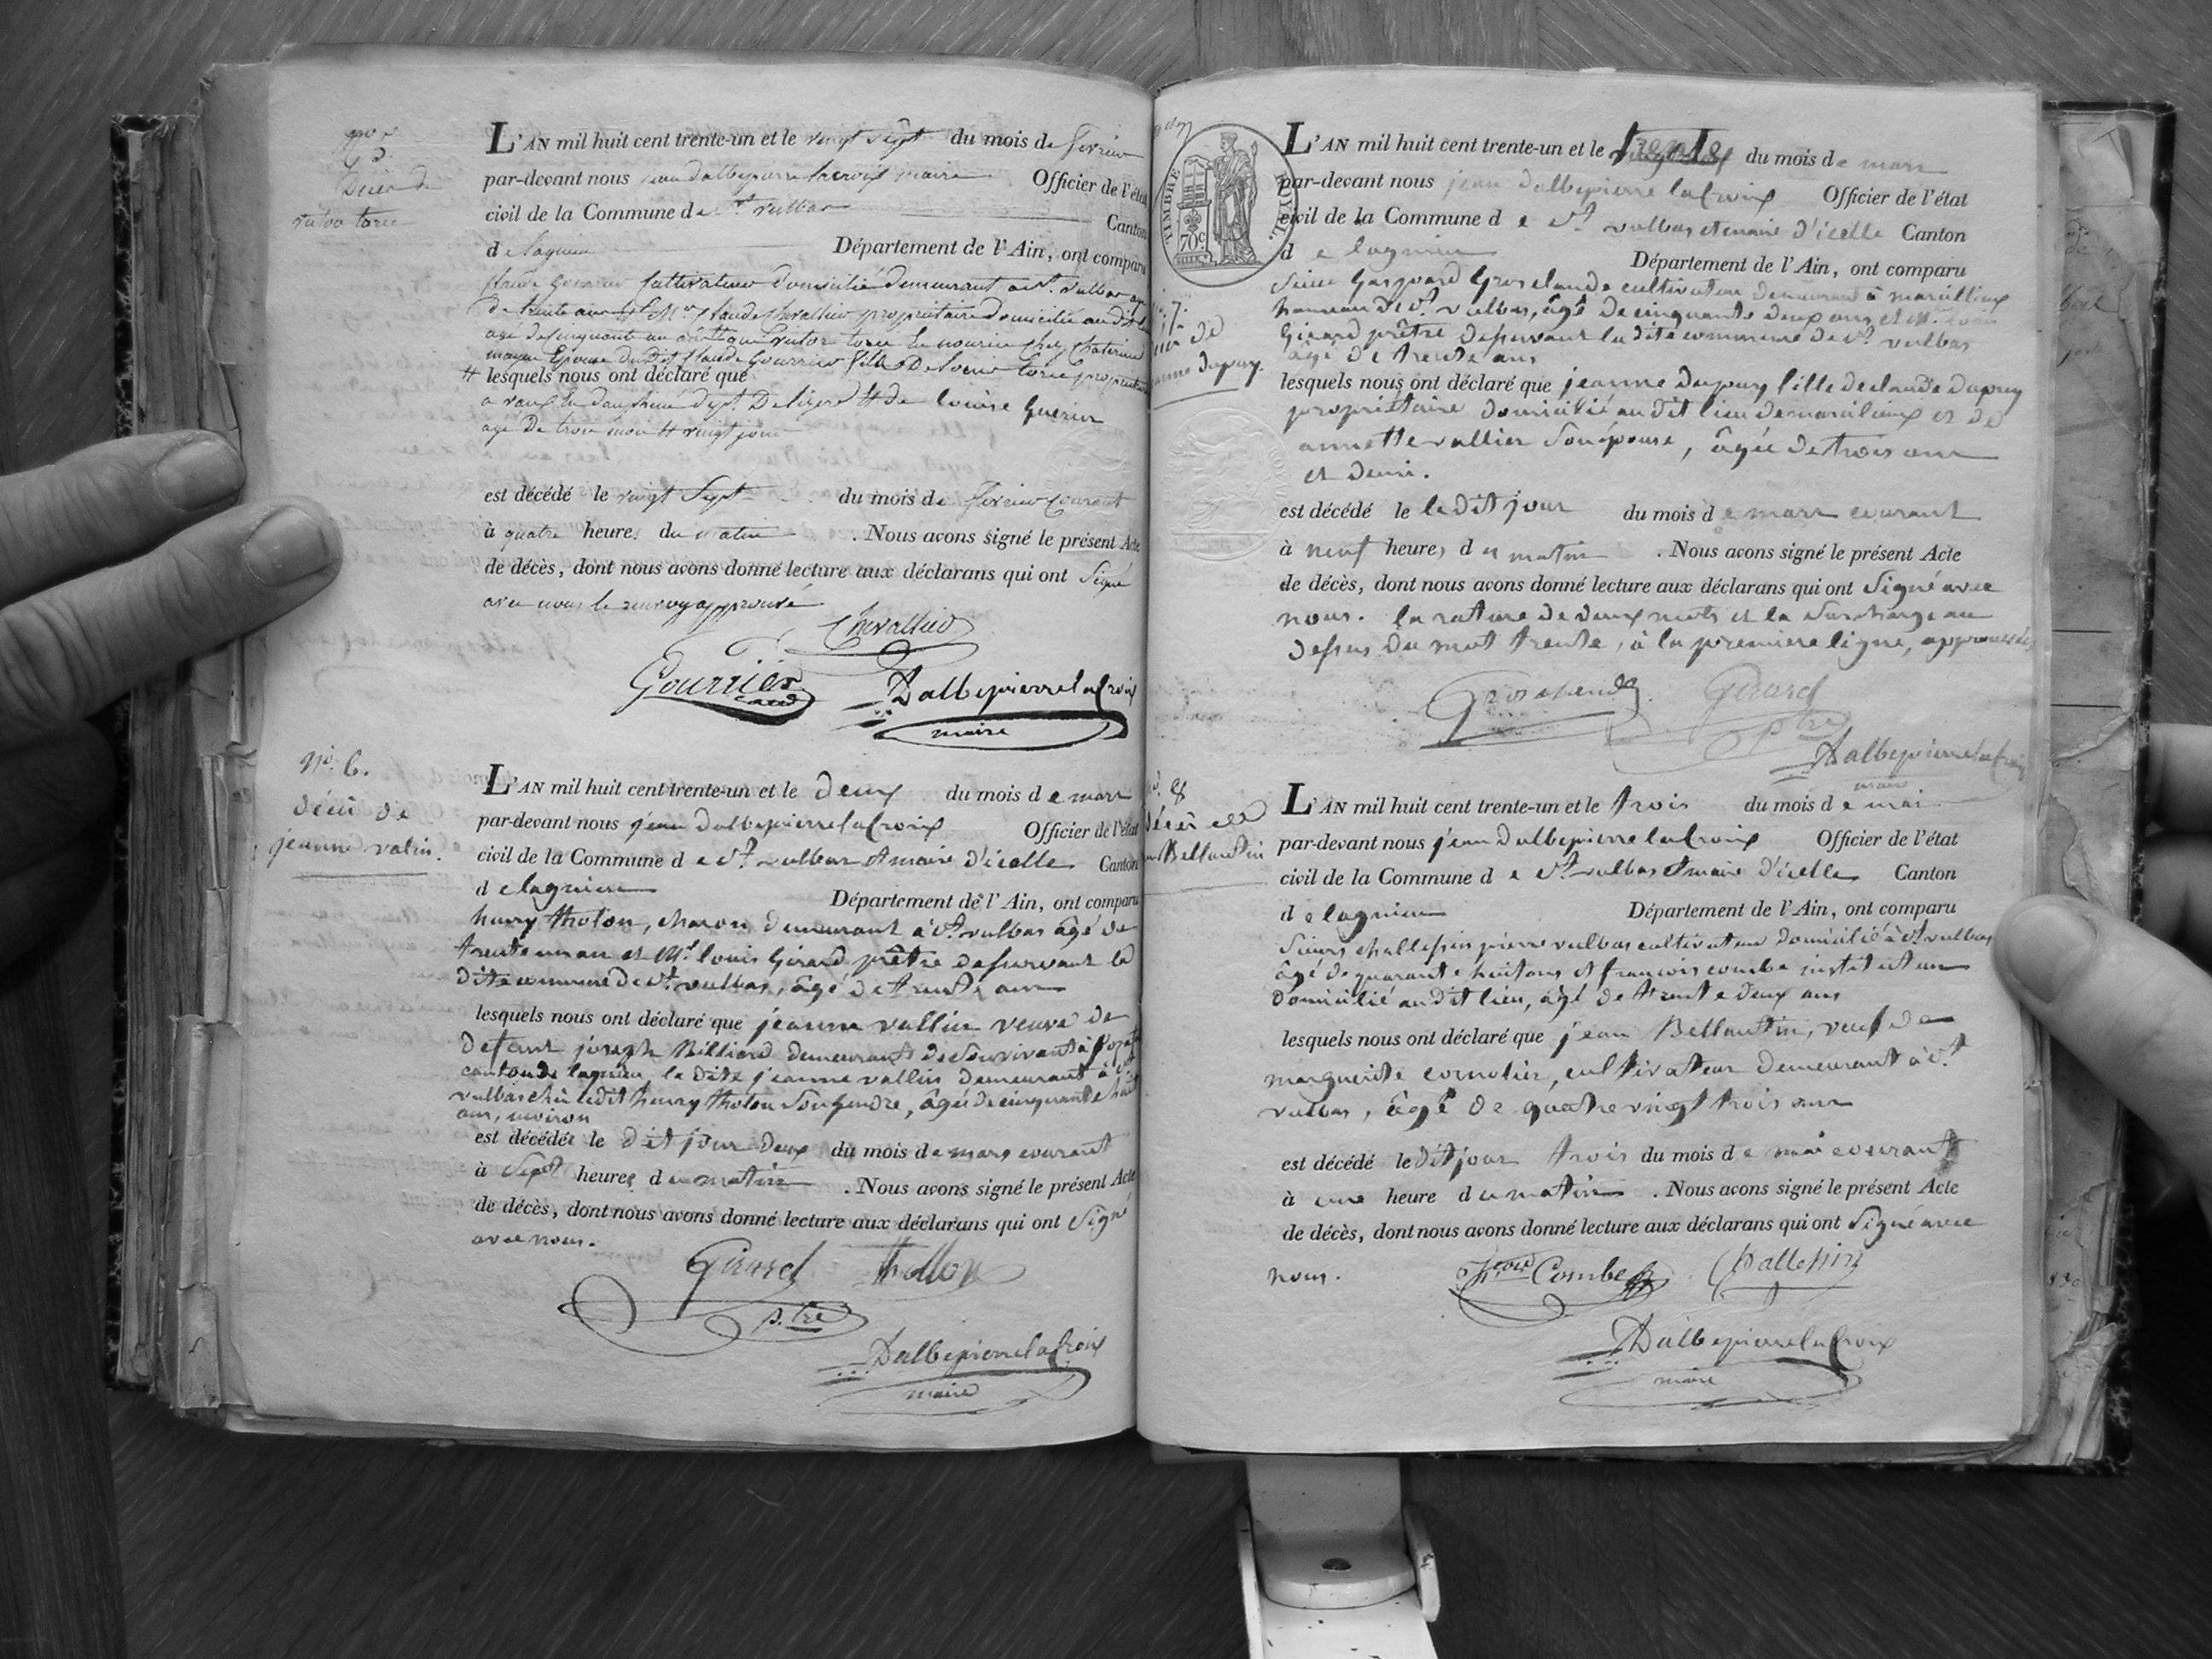 n.° 5.
Décès de
victor torie
L'AN mil huit cent trente-un et le vingt sept du mois de fevrier
par-devant nous jean dalbepierre lacroix maire Officier de l'état
civil de la Commune de st. vulbas Canton
de lagnieu Département de l'Ain, ont comparu
Claude Gourrier cultivateur domicilié demeurant a st. vulbas agé
de trente ans et Mr. Claude Chevallier propriétaire domicilié audit
agé de cinquante un que victor torie en nourice chez Chaterine
épouse dudit Claude Gourrier fils de torie propriétaire
# lesquels nous ont déclaré que
a vaux en dauphiné dépt. De lizere # de louise Guerin
agé de trois mois # vingt jours
est décédé le vingt sept du mois de fevrier courant
à quatre heures du matin . Nous avons signé le présent Acte
de décès, dont nous avons donné lecture aux déclarans qui ont signé
avec nous le renvoy approuvé
Chevallier
Gourrier Dalbepierrelacroix
maire
n.° 6.
décès de
jeanne valin.
L'AN mil huit cent trente-un et le deux du mois de mars
par-devant nous jean dalbepierre lacroix Officier de l'état
civil de la Commune de st. vulbas et maire d'icelle Canton
de lagnieu Département de l'Ain, ont comparu
henry tholon, charon demeurant à st. vulbas âgé de
trente un an et Mr. louis Girard prêtre desservant la
dite commune de st. vulbas, âgé de trente ans
lesquels nous ont déclaré que jeanne vallin veuve de
defunt joseph Billiard demeurant de son vivant à
canton de lagnieu, la dite jeanne vallin demeurant à st.
vulbas chez ledit henry tholon son gendre, âgée de cinquante huit
ans, environ
est décédée le dit jour deux du mois de mars courant
à sept heures du matin . Nous avons signé le présent Acte
de décès, dont nous avons donné lecture aux déclarans qui ont signé
avec nous.
Girard thollon
p.tre
Dalbepierrelacroix
maire
TIMBRE ROYAL.
70c.
7.
de
jeanne dupuy.
L'AN mil huit cent trente-un et le trente du mois de mars
par-devant nous jean dalbepierre lacroix Officier de l'état
civil de la Commune de st. vulbas et maire d'icelle Canton
de lagnieu Département de l'Ain, ont comparu
sieur Gaspard Groselande cultivateur demeurant à marcillieux
hameau de st. vulbas, âgé de cinquante deux ans, et Mr. louis
Girard prêtre desservant la dite commune de st. vulbas
âgé de trente ans
lesquels nous ont déclaré que jeanne dupuy fille de claude dupuy
propriétaire domicilié au dit lieu de marcilieux et de
annette vallier son épouse, âgée de trois ans
et demi.
est décédé le le dit jour du mois de mars courant
à neuf heures du matin . Nous avons signé le présent Acte
de décès, dont nous avons donné lecture aux déclarans qui ont signé avec
nous. la rature de deux mots et la surcharge au
dessus du mot trente, à la premiere ligne, approuvées
Girard
ptre
Dalbepierrelacroix
maire
8
décès de
jean Bellantin
L'AN mil huit cent trente-un et le trois du mois de mai
par-devant nous jean dalbepierre lacroix Officier de l'état
civil de la Commune de st. vulbas et maire d'icelle Canton
de lagnieu Département de l'Ain, ont comparu
sieurs challessin pierre vulbas cultivateur domicilié à st. vulbas
âgé de quarante huit ans et françois combe instituteur
domicilié au dit lieu, âgé de trente deux ans
lesquels nous ont déclaré que jean Bellantin, veuf de
marguerite cornolier, cultivateur demeurant à st.
vulbas, âgé de quatre vingt trois ans
est décédé le dit jour trois du mois de mai courant
à une heure du matin . Nous avons signé le présent Acte
de décès, dont nous avons donné lecture aux déclarans qui ont signé avec
nous.
Combe Challessin
Dalbepierrelacroix
maire